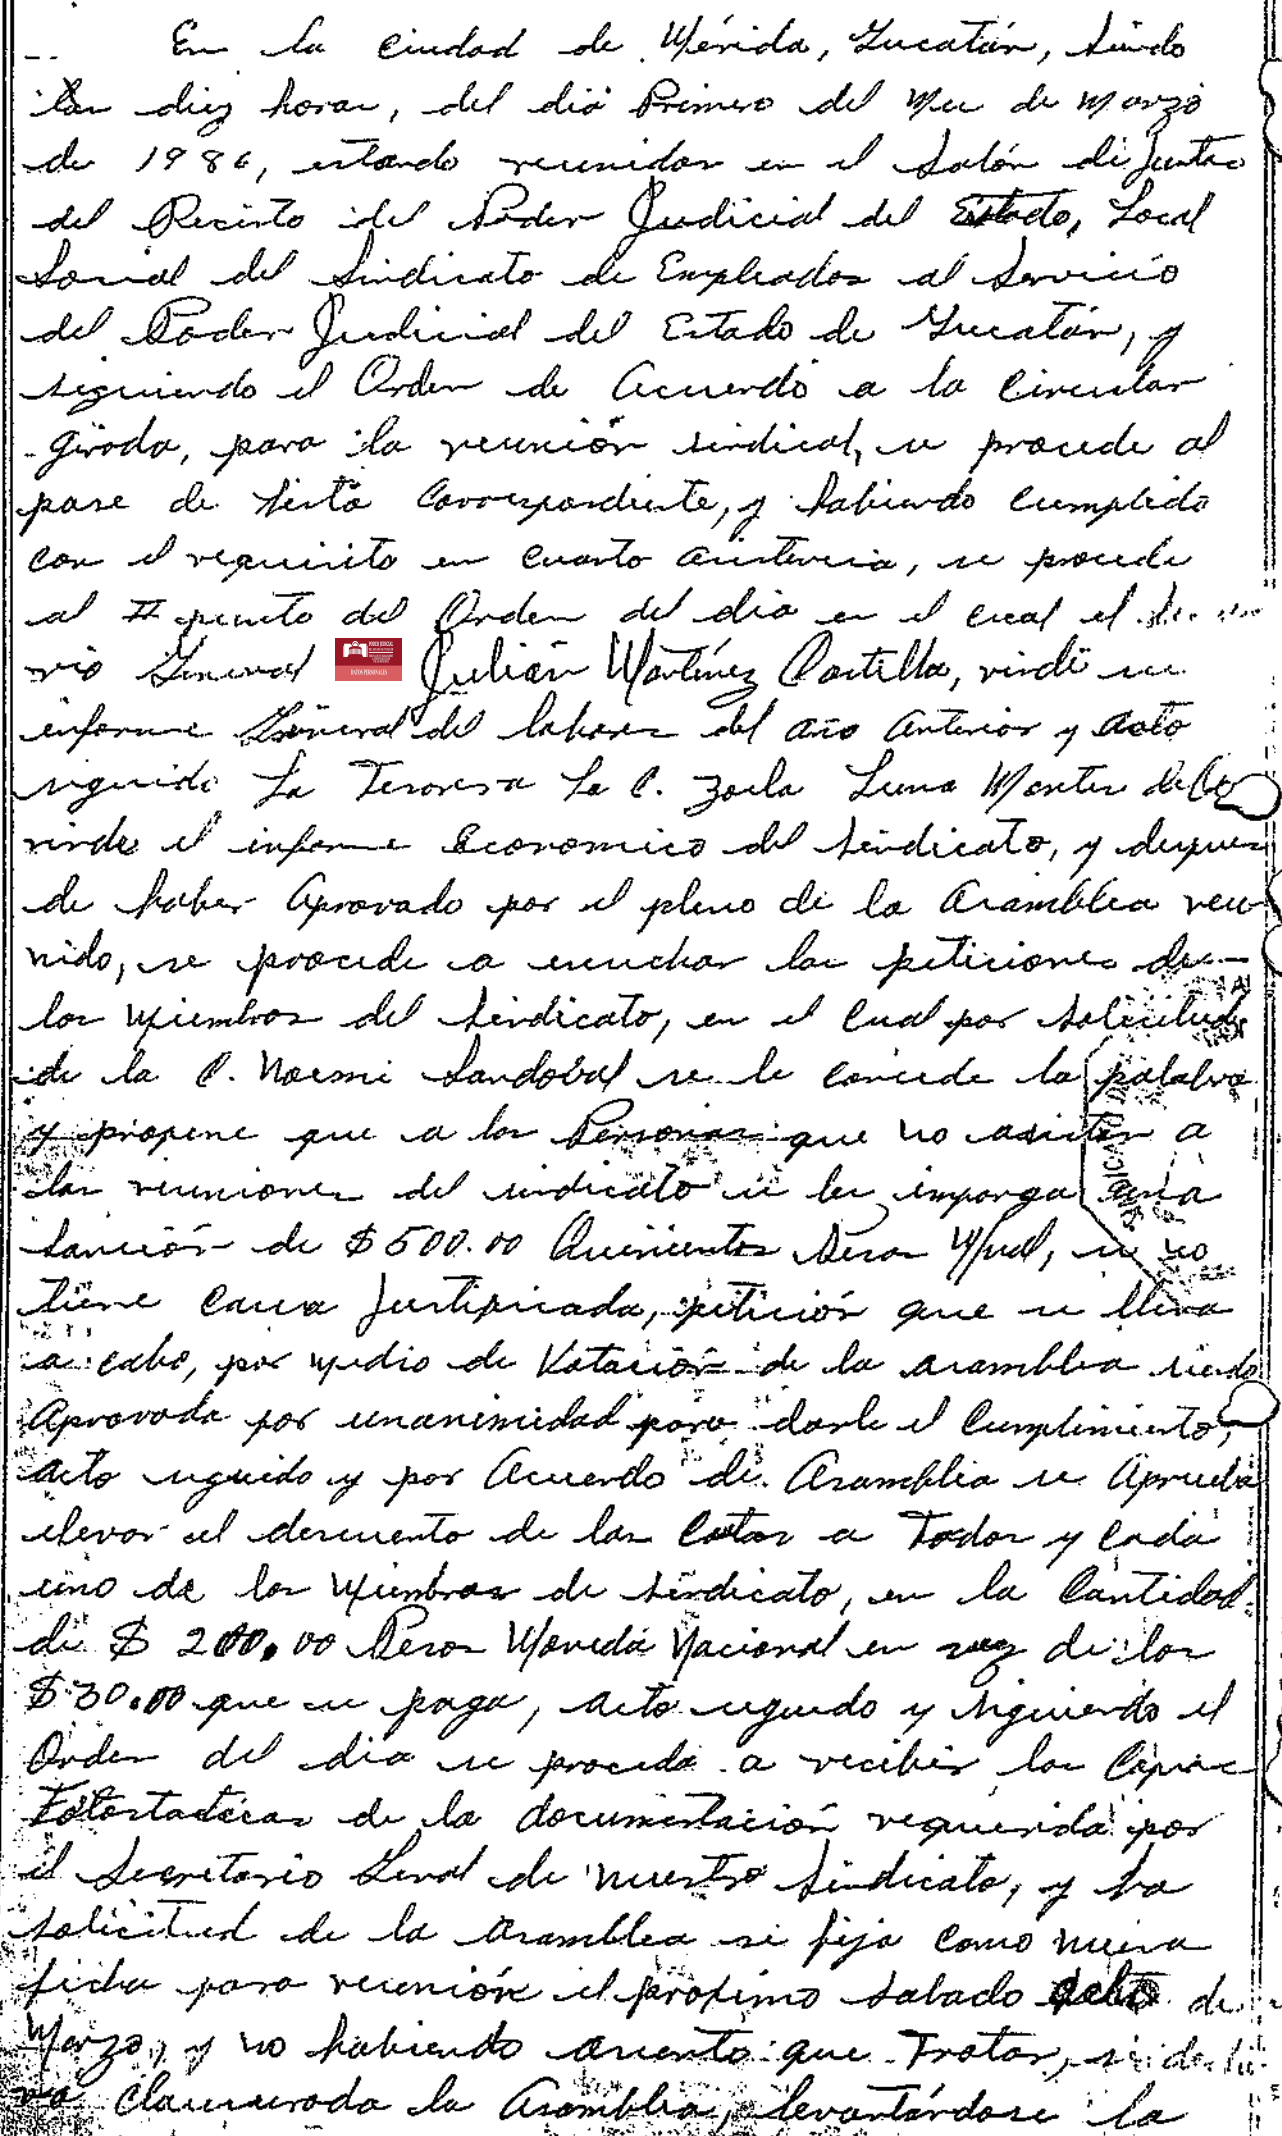 En la ciudad de Mérida, Yucatán, siendo
las diez horas, del dia Primero del Mes de Marzo
de 1986, estando reunidos en el Salón de Juntas
del Recinto del Poder Judicial del Estado, Local
Social del Sindicato de Empleados al Servicio
del Poder Judicial del Estado de Yucatán, y
siguiendo el Orden de Acuerdo a la Circular
Girada, para la reunión sindical, se procede al
pase de lista Correspondiente, y habiendo Cumplido
con el requisito en cuanto asistencia, se procede
al II punto del Orden del dia en el cual el
rio General Julián Martínez Castilla, rinde su
PODER JUDICIAL
DATOS PERSONALES
informe General del labores del año Anterior y acto
seguido La Tesorera la C. Zoila Luna Montes de
rinde el informe Economico del Sindicato, y despues
de haber Aprovado por el pleno de la Asamblea reu
nido, se procede a escuchar las peticiones de
los Miembros del Sindicato, en el Cual por solicitud
de la C. Noemi Sandoval se le concede la palabra
y propene que a las Personas que no asistan a
las reuniones del sindicato se les imponga una
Sanción de $500.00 Quinientos Pesos M/nal, si no
tiene Causa Justificada, petición que se lleva
a cabo, por medio de Votación de la asamblea siendo
Aprovada por unanimidad para darle el Cumplimiento,
acto seguido y por Acuerdo de Asamblea se Aprueba
elevar el descuento de las Cotas a Todos y cada
uno de los Miembros de Sindicato, en la Cantidad
de $ 200.00 Pesos Moneda Nacional en vez de los
$30.00 que se paga, acto seguido y siguiendo el
Orden del dia se procede a recibir las Copias
Fotostaticas de la documentación requerida por
el Secretario Genral de nuestro Sindicato, y ha
solicitud de la Asamblea se fija como nueva
fecha para reunión el proximo sabado ocho de
Marzo, y no habiendo asunto que Tratar, se
ra Clausurada la Asamblea, levantándose la